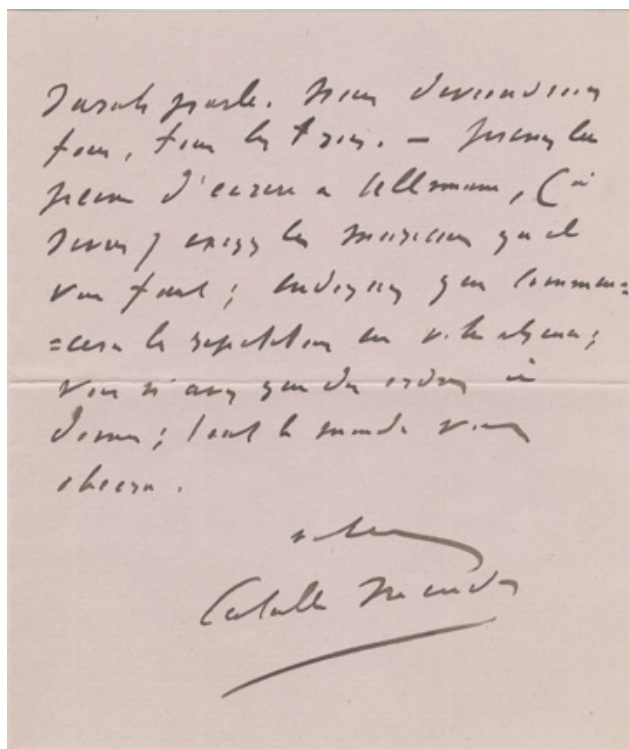 Sarah parle. Nous deviendrons
fous, tous les trois. — Prenez la
peine d'écrire à Ullmann, (
exigez les musiciens qu'il
vous faut; indiquez quand commen=
=cera la répétition en votre absence;
vous n'avez que des ordres à
donner; tout le monde vous
obéira.
votre
Catulle Mendès